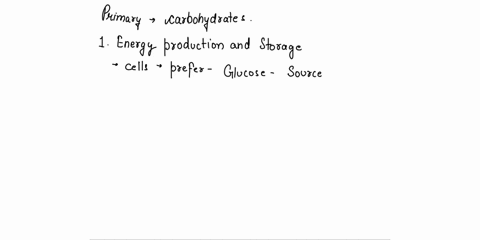 Primary → carbohydrates.
1. Energy production and Storage
→ cells → prefer - Glucose - Source